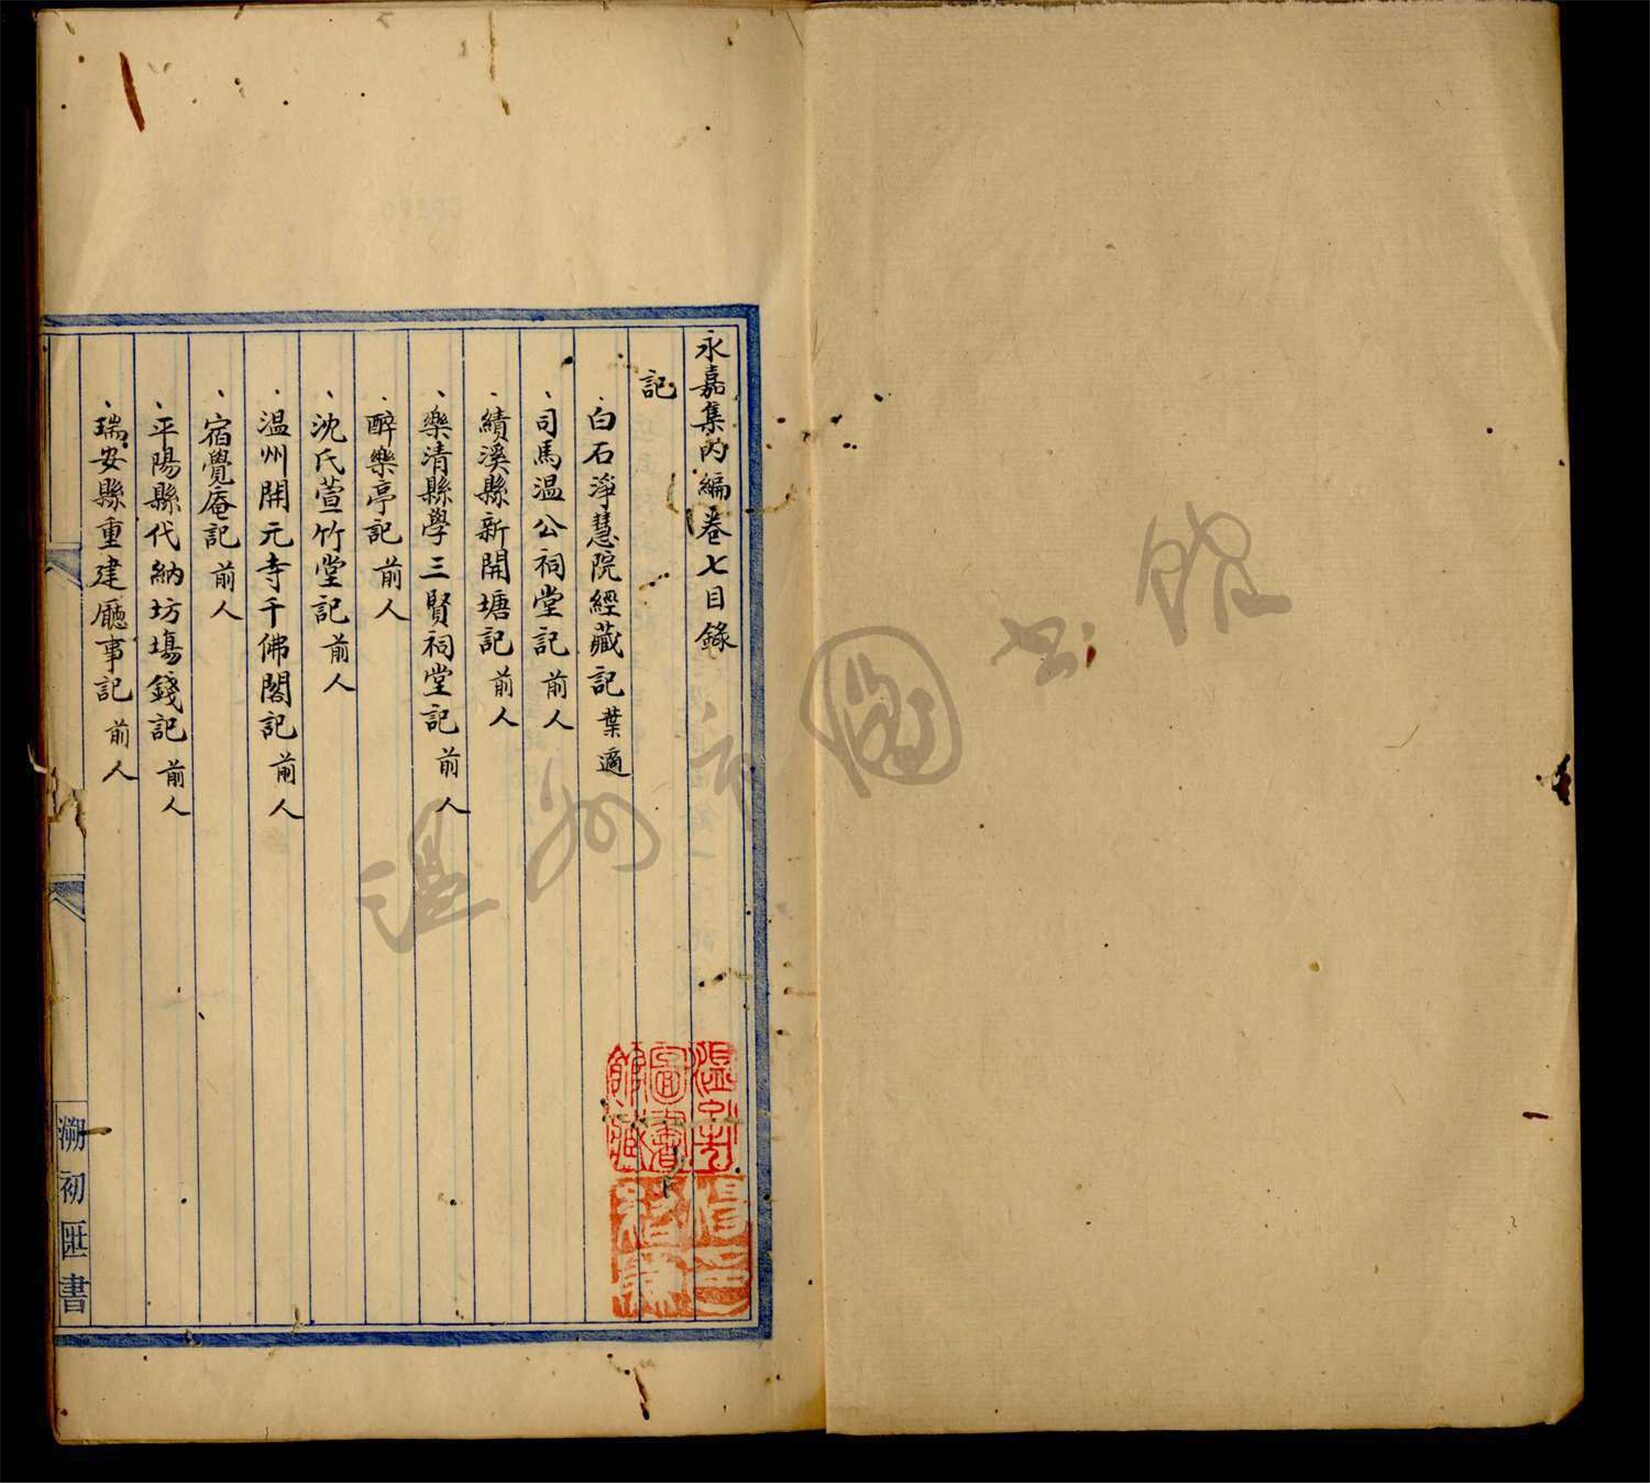 永嘉集内編卷七目錄
記
白石淨慧院經藏記 葉適
司馬温公祠堂記 前人
績溪縣新開塘記 前人
樂清縣學三賢祠堂記 前人
醉樂亭記 前人
沈氏萱竹堂記 前人
温州開元寺千佛閣記 前人
宿覺庵記 前人
平陽縣代納坊塲錢記 前人
瑞安縣重建廳事記 前人
溯初匪書
温州市
圖書
館藏
温州市圖书馆